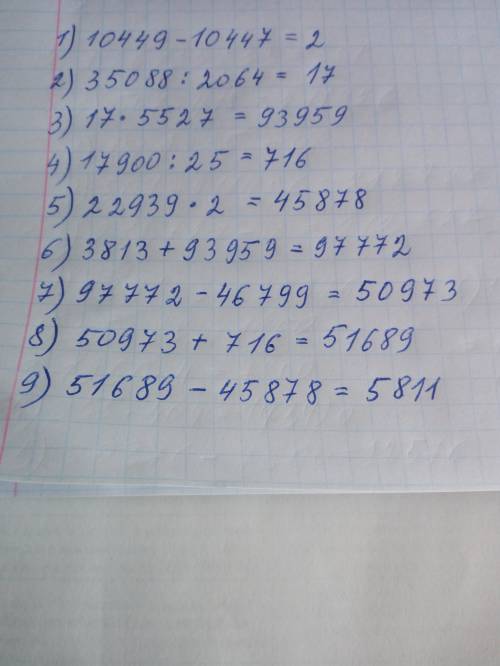 1) 10449 - 10447 = 2
2) 35088 : 2064 = 17
3) 17 · 5527 = 93959
4) 17900 : 25 = 716
5) 22939 · 2 = 45878
6) 3813 + 93959 = 97772
7) 97772 - 46799 = 50973
8) 50973 + 716 = 51689
9) 51689 - 45878 = 5811